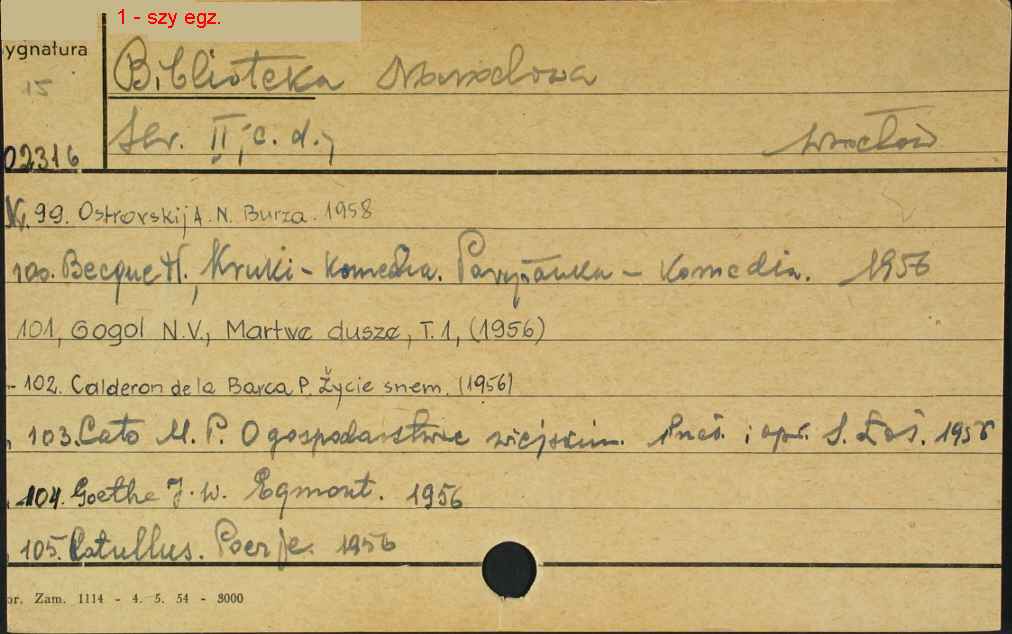 1 - szy egz.
ygnatura
15
Biblioteka Narodowa
Ser. II, c. d.,
Wrocław
02316
Nr, 99. Ostrovskij A. N. Burza. 1958
100. Becque H., Kruki - Komedia. Paryżanka - Komedia. 1956
101, Gogol N.V., Martwe dusze, T.1, (1956)
- 102. Calderon de la Barca P. Życie snem. (1956)
103. Cato M. P. O gospodarstwie wiejskim. i opr. S. Łoś. 1956
104. Goethe J. W. Egmont. 1956
105. Catullus. Poezje. 1956
or. Zam. 1114 - 4. 5. 54 - 3000